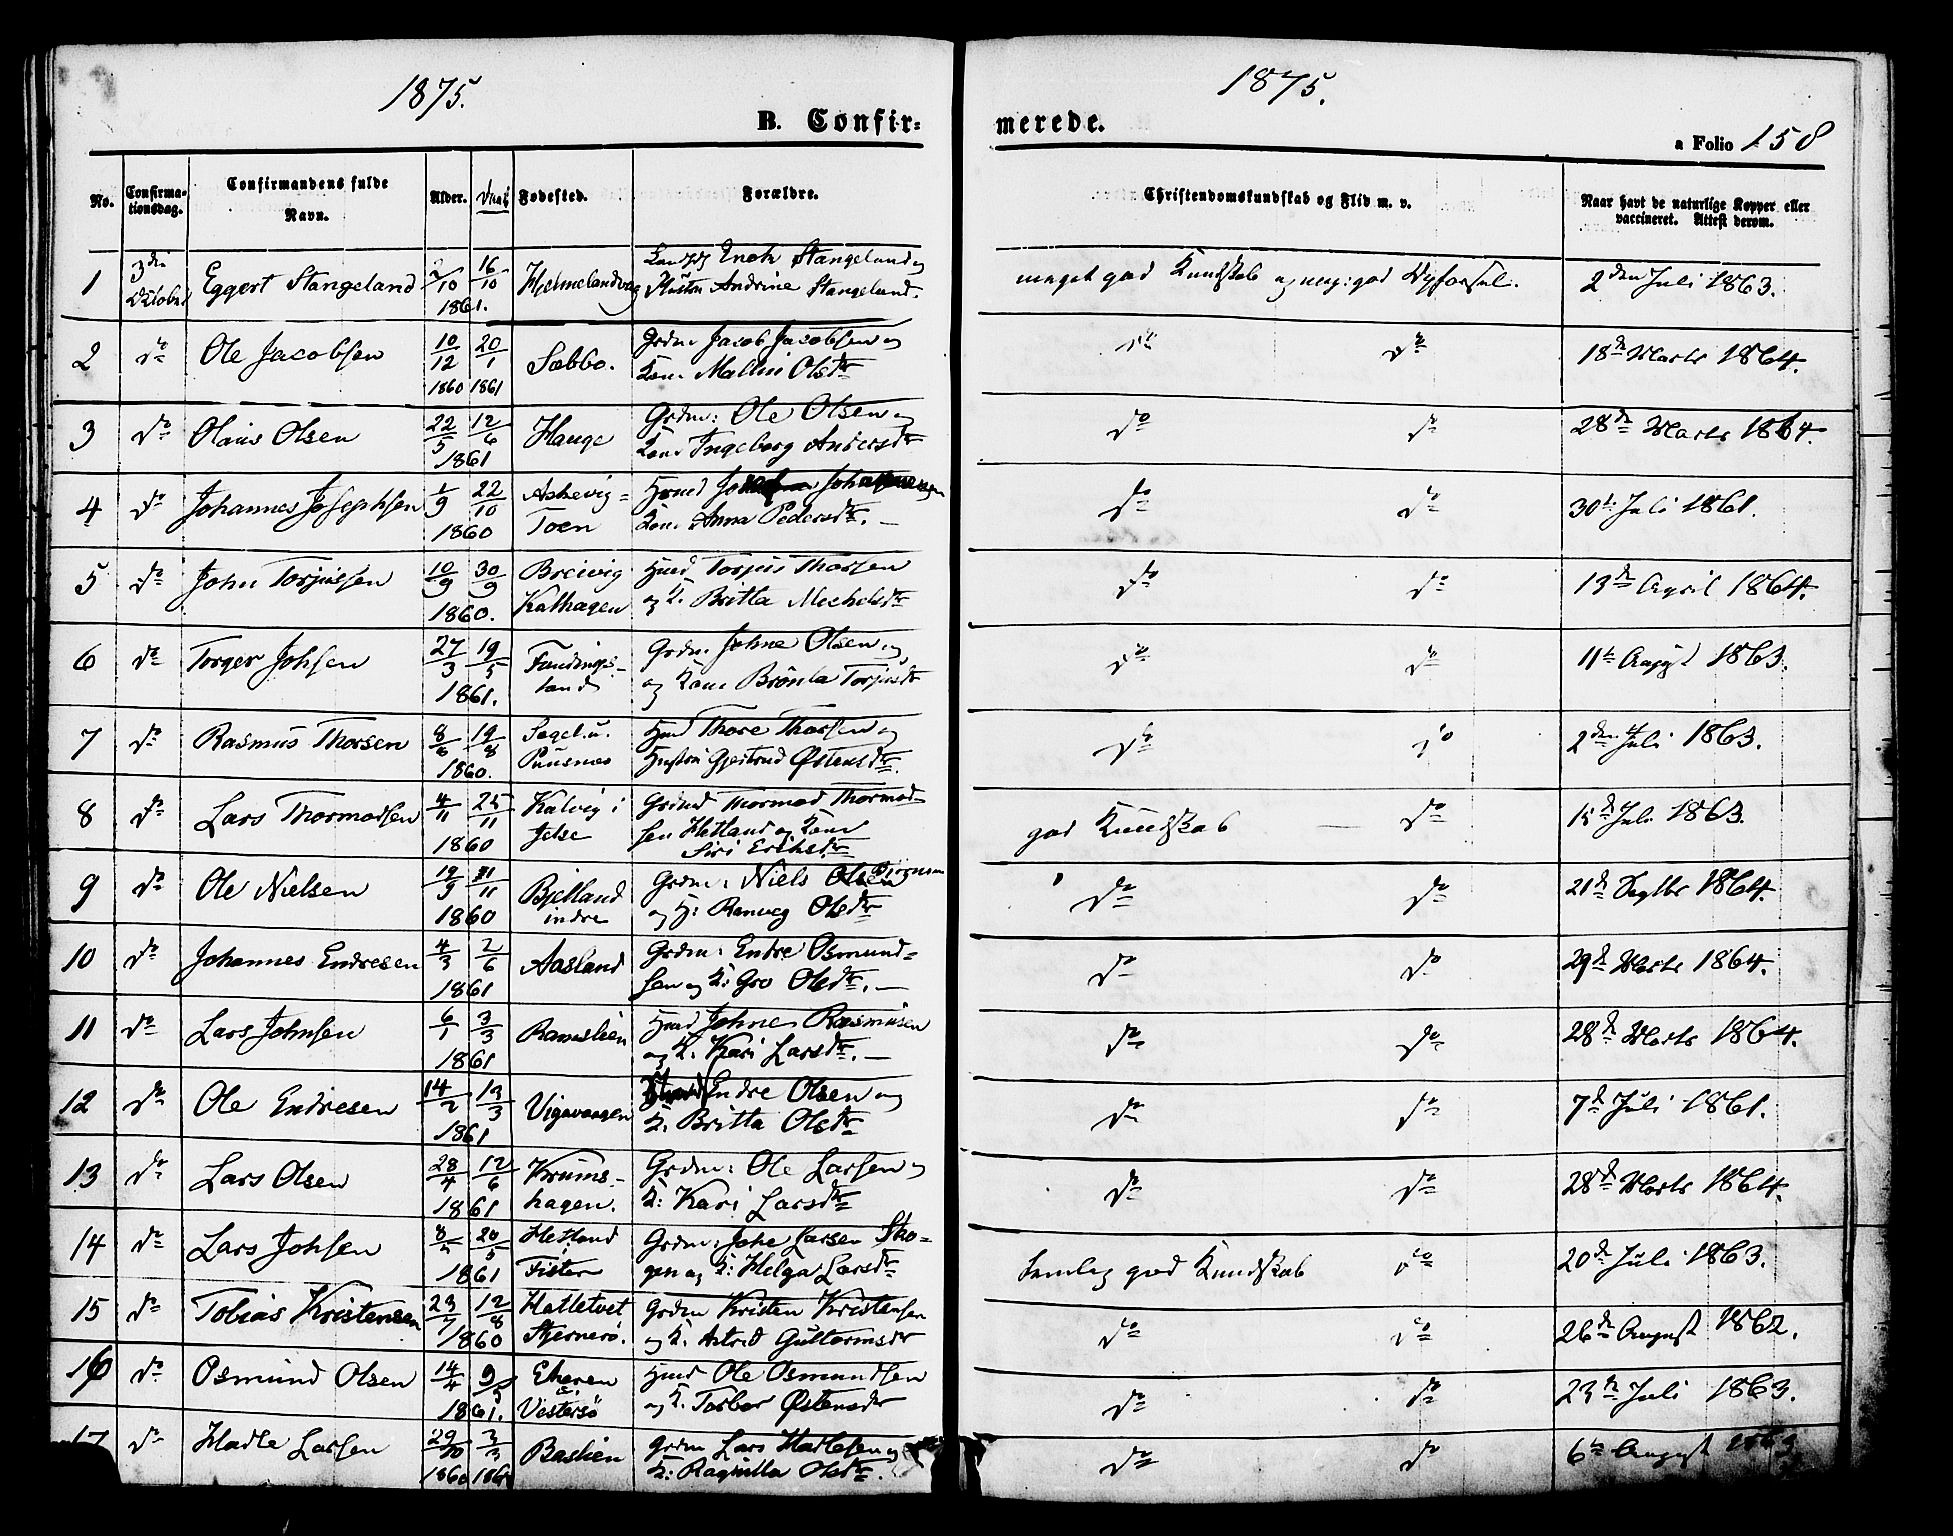 1875.
1875.
B. Confir-
merede.
a Folio 158
No.
Confirma-
tionsdag.
Confirmandens fulde
Navn.
Alder.
Fødested.
Forældre.
Christendomskundskab og Flid m. v.
Naar havt de naturlige Kopper eller
vaccineret. Attest derom.
1 3die October Eggert Stangeland /10 16/10 1861. Hjelmelandvaag
Enok Stangeland og
Hustru Andrine Stangeland.
meget god Kundskab og meg: god Opførsel. 2den Juli 1863.
2 do Ole Jacobsen 10/12 1860 20/1 1861 Sæbbo.
Grdm. Jacob Jacobsen og
Kone Mallin Olsdtr
do do 18de Marts 1864.
3 do Olaus Olsen 22/5 12/6 1861 Hauge
Grdm: Ole Olsen og
Kone Ingeborg Andersdtr
do do 28de Marts 1864.
4 do Johannes Josephsen 1/9 22/10 1860 Askevig-
Toen
Hsmd Johannesen
Kone Anna Pedersdtr. –
do do 30te Juli 1861.
5 do John Torjussen 10/9 30/9 1860. Breivig
Kalhagen
Hsmd Torjus Thorsen
og K. Britta Michelsdtr
do do 13de April 1864.
6 do Torger Johsen 27/3 19/5 1861. Fundings-
land
Grdm. Johne Olsen og
og Kone Brönla Torjusdtr
do do 11te August 1863.
7 do Rasmus Thorsen 8/6 19/8 1860.
Hsmd Thore Thorsen og
Hustru Gjertrud Østensdtr.
do do 2den Juli 1863.
8 do Lars Thormodsen 4/11 25/11 1860 Kalvig i
Jelse
Grdmd Thormod Thormod-
sen Hetland og Kone
Siri Eriksdtr
god Kundskab — do 15de Juli 1863.
9 do Ole Nielsen 19/9 /11 1860 Bjelland
indre
Grdm: Niels Olsen
og H: Ranveg Olsdtr
do do 21de Septbr 1864.
10 do Johannes Endresen 4/3 2/6 1861 Aasland
Grdm: Endre Osmund-
sen og K: Gro Olsdtr. –
do do 29de Marts 1864.
11 do Lars Johnsen 6/1 3/3 1861 Ramslien
Hsmd Johne Rasmusen
og K. Kari Larsdtr. –
do do 28de Marts 1864.
12 do Ole Endresen 14/2 13/3 1861 Vigavaagen
Endre Olsen og
K. Britta Olsdtr
do do 7de Juli 1861.
13 do Lars Olsen 28/4 12/6 1861 Krums-
hagen.
Grdm: Ole Larsen og
K: Kari Larsdtr
do do 28de Marts 1864.
14 do Lars Johsen 8/ 20/5 1861 Hetland
Fister
Grdm: Johe Larsen Sko-
gen og K: Helga Larsdtr
temlig god Kundskab do 20de Juli 1863.
15 do Tobias Kristensen 23/7 12/8 1860 Halletvet
Stjernerö.
Grdm Kristen Kristensen
og K. Astrid Guttormsdtr
do do 26de August 1862.
16 do Osmund Olsen 14/4 9/5 1861. Eheren
Vestersö
Hsmd Ole Osmundsen
og K. Torbor Østensdtr
do do 23de Juli 1863.
17 do Hadle Larsen 29/10 1860 3/3 1861 Baslien
Grdm Lars Hadlesen og
K: Ragnilla Olsdtr.
do do 6te August 1863